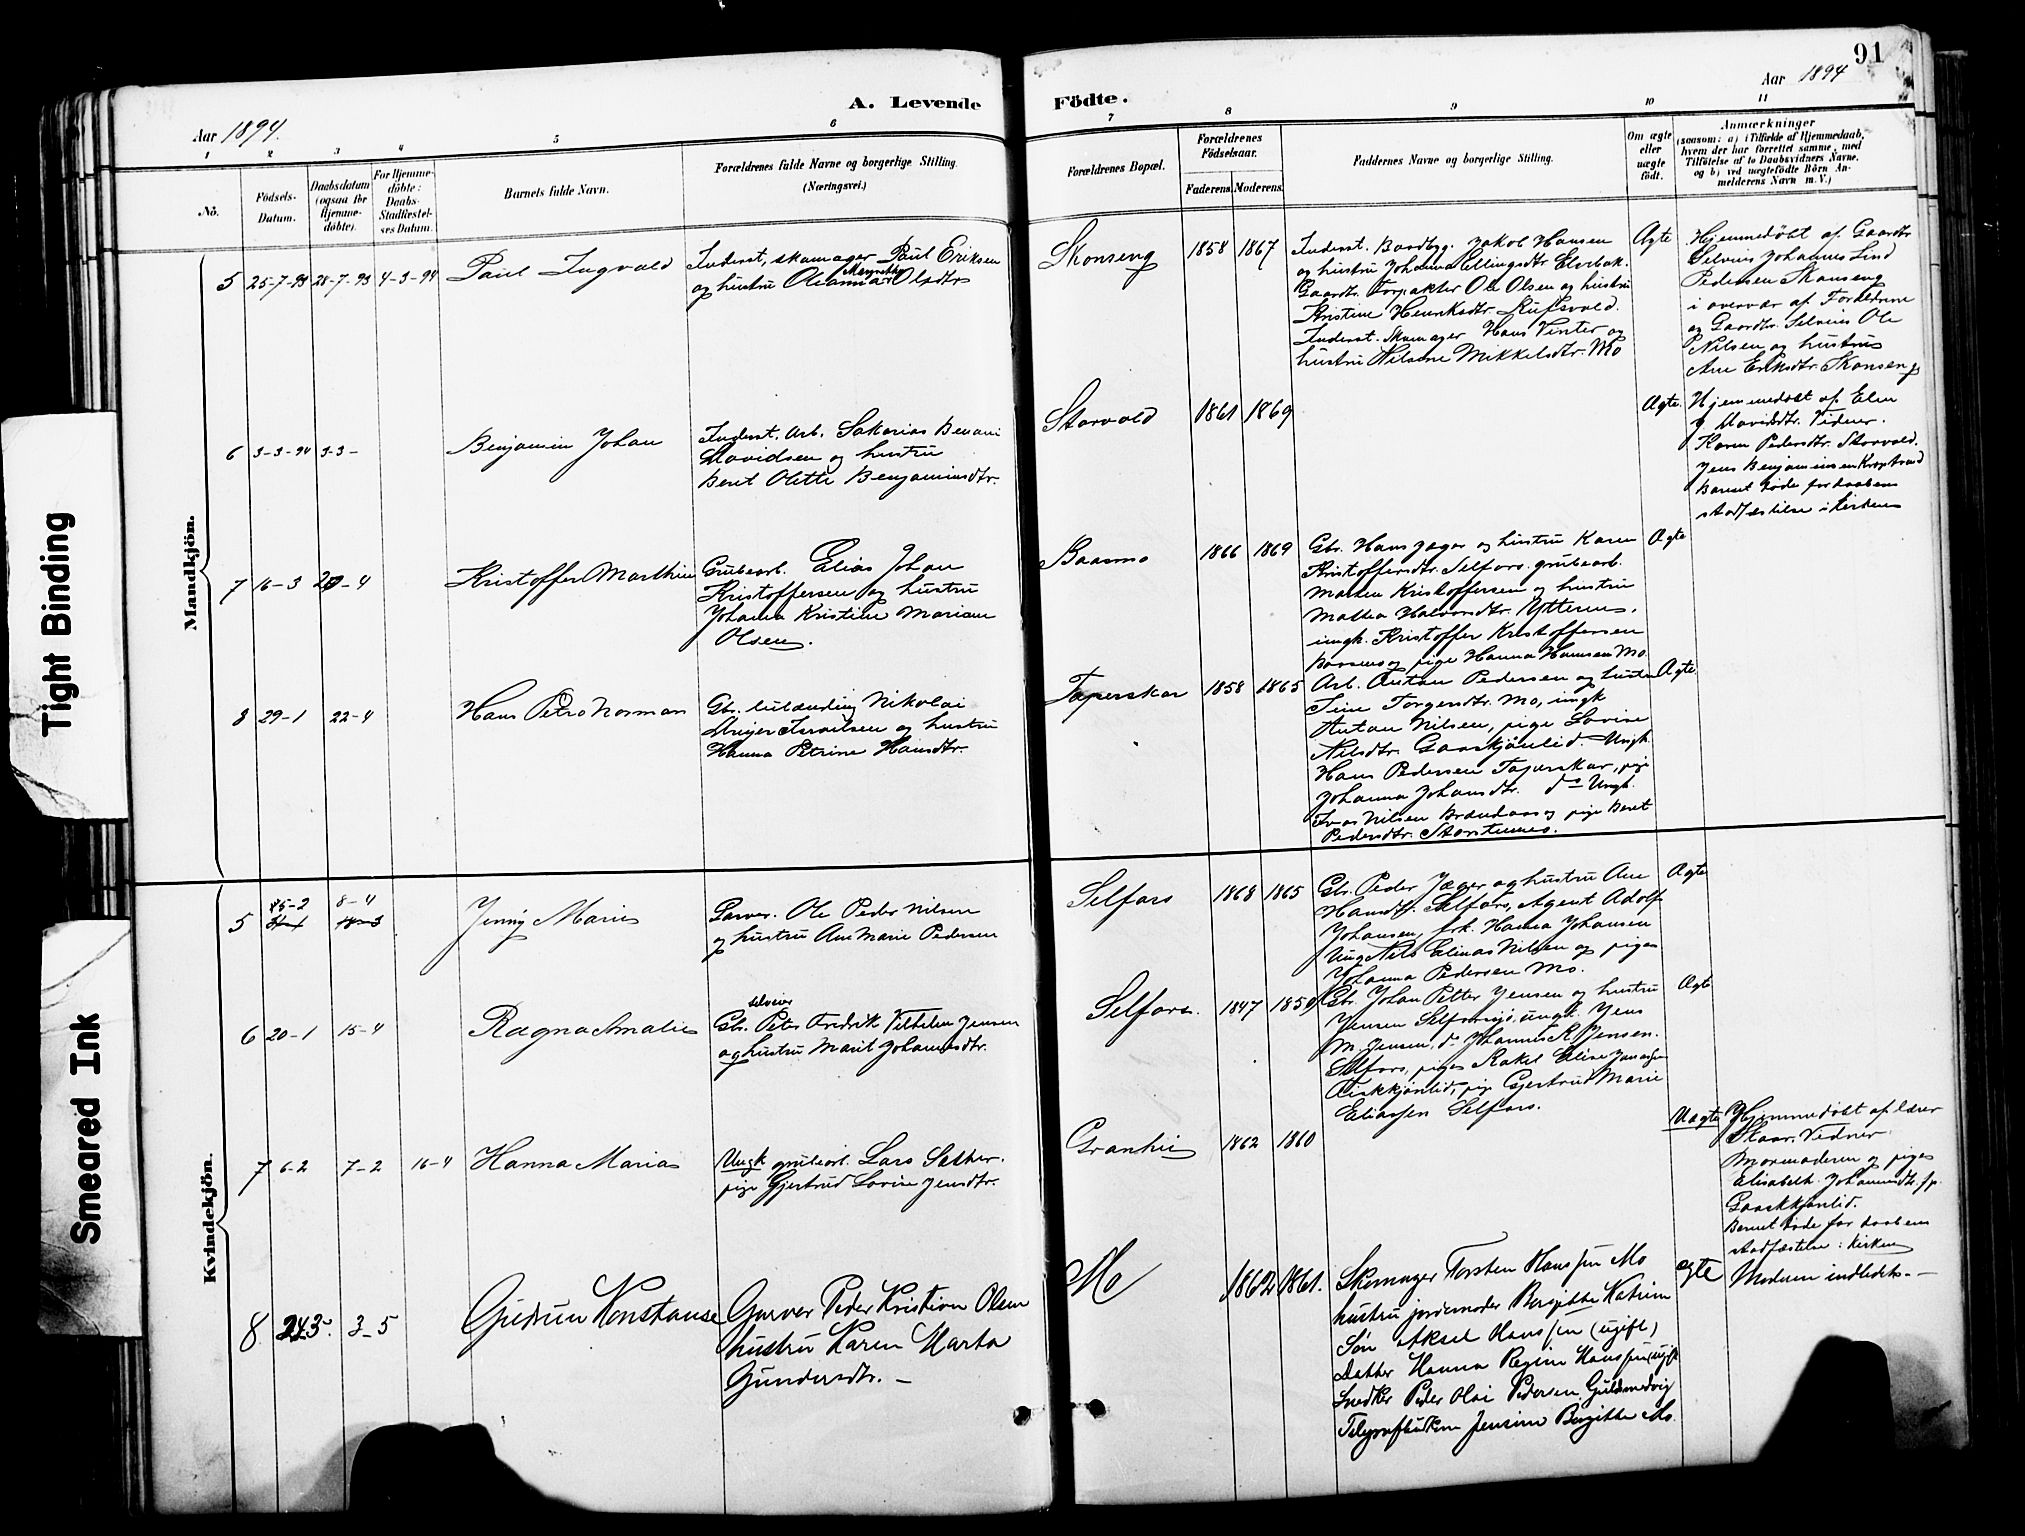 91
A. Levende Födte.
Aar 1894.
Aar 1894
1 2 3 4 5 6 7 8 9 10 11
No.
Födsels-
Datum.
Daabsdatum
(ogsaa for
Hjemme-
döbte).
For Hjemme-
döbte:
Daabs-
Stadfæstel-
ses Datum.
Barnets fulde Navn.
Forældrenes fulde Navne og borgerlige Stilling.
(Næringsvei.)
Forældrenes Bopæl.
Forældrenes
Födselsaar.
Faderens. Moderens.
Faddernes Navne og borgerlige Stilling.
Om ægte
eller
uægte
födt.
Anmærkninger
(saasom: a) i Tilfælde af Hjemmedaab,
hvem der har forrettet samme, med
Tilföielse af to Daabsvidners Navne,
og b) ved uægtefödte Börn An-
melderens Navn m. V.)
Tight Binding
Smeared Ink
Mandkjön.
5 25-7-93 28-7-93 4-3-94 Paul Ingvald
Inderst, skomager Paul Eriksen
og hustru Oleanna Margrethe Olsdtr
Skonseng 1858 1867
Inderst. Baadbyg. Jakob Hansen
og hustru Johanna Ellingsdtr Elvebak.
Gaardbr. Forpakter Ole Olsen og hustru
Kristine Henriksdtr. Rufsvold.
Inderst. Skomager Hans Vinter og
hustru Nilsine Mikkelsdtr. Mo
Ægte
Hjemmedöbt af Gaardbr
Selveier Johannes Lind
Pedersen Skonseng
i overvær af Forældrene
og Gaardbr. Selveier Ole
Nilsen og hustru
Ane Eriksdtr. Skonseng
6 3-3-94 3-3- Benjamin Johan
Inderst. Arb. Sakarias Benoni
Davidsen og hustru
Beret Olette Benjaminsdtr.
Storvold 1861 1869
Ægte.
Hjemmedöbt af Elen
Davidsdtr. Vidner.
Karen Pedersdtr. Storvold.
Jens Benjaminsen
Barnet döde för daabens
stadfæstelse i kirken
7 16-3 20-4 Kristoffer Marthin
Grubearb. Elias Johan
Kristoffersen og hustru
Johanna Kristine Mariane
Olsen.
Baasmo 1866 1869
Gbr. Hans Jæger og hustru Karen
Kristoffersdtr. Selfors. grubearb.
Morten Kristoffersen og hustru
Mathea Halvorsdtr. Ytteren,
ungk. Kristoffer Kristoffersen
og pige Hanna Hansen Mo
Ægte
8 29-1 22-4 Hans Petro Norman
Gbr. Nikolai
Meyer Israelsen og hustru
Hanna Petrine Hansdtr.
Taperskar 1858 1865
Arb. Anton Pedersen og hustru
Torgersdtr. Mo, ungk
Anton Nilsen, pige Lovise
Nilsdtr. Ungk.
Hans Pedersen Taperskar, pige
Johanna Johansdtr. do Ungk.
Nilsen og pige Beret
Pedersdtr. Storstennes.
Ægte
Kvindekjön.
5 25-2 8-4 Jenny Marie
Garver. Ole Peder Nilsen
og hustru Ane Marie Pedersen
Selfors 1868 1865
Gbr. Peder Jæger og hustru Ane
Hansdtr. Selfors, Agent Adolf
Johansen, frk. Hanna Johansen
Ung. Nils Elinas Nilsen og pige
Johanna Pedersen Mo.
Ægte
6 20-1 15-4 Ragna Amalie
Gbr. selveier Peter Fredrik Vilhelm Jensen
og hustru Marit Johannesdtr.
Selfors. 1847 1850
Gbr. Johan Petter Jensen og hustru
Jensen ungk. Jens
M. Jensen, do Johannes R. Jensen.
Selfors, pige Rakel Elise
pige Gjertrud Marie
Eliassen Selfors.
Ægte
7 6-2 7-2 16-4 Hanna Maria
Ungk grubearb. Lars Sæther.
pige Gjertrud Lovise Jensdtr.
Granhei 1862 1860
Uægte
Hjemmedöbt af lærer
Skaar. Vidner
Mormoderen og pige
Elisabeth Johannesdtr.
Barnet döde för daabens
stadfæstelse i kirken
8. 24-3. 3-5 Gudrun Konstanse
Garver Peder Kristian Olsen
hustru Karen Marta
Gundersdtr. -
Mo 1862 1861.
Skomager Torsten Hanssen Mo
hustru jordemoder Bergitte Katrine
Sön Aksel Hanssen (ugift)
Datter Hanna Regine Hanssen (ugift
Snedker Peder Olai Pedersen Guldmedvig
Jensine Bergitte Mo.
ægte
Moderen indledet. -